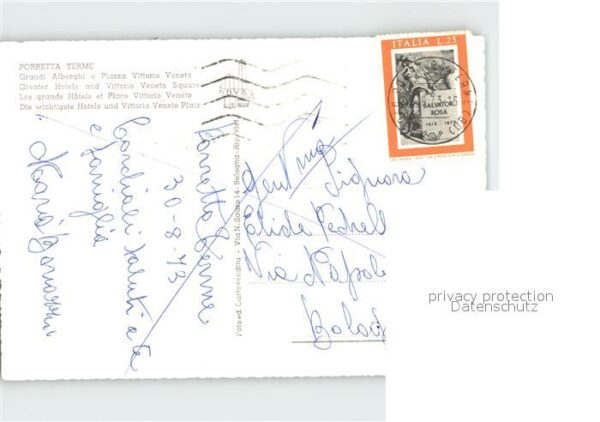 PORRETTA TERME
Grandi Alberghi e Piazza Vittorio Veneto
Greater Hotels and Vittorio Veneto Square
Les grands Hôtels et Place Vittorio Veneto
Die wichtigste Hotels und Vittorio Veneto Platz
ITALIA L. 25
SALVATOR
ROSA
1615 - 1673
Porretta Terme
30-8-73
Cordiali saluti a te
e famiglia
Maria
Foto ed. Cartovendita - Via N. Sauro 14 - Bologna
Gent.ma Signora
Via Napoli
Bolog
privacy protection
Datenschutz